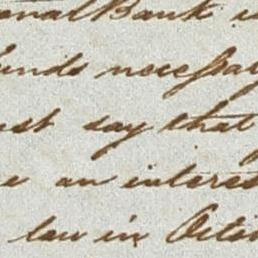 onal Bank i
funds necessa
ust say that
e an interes
law in Octo